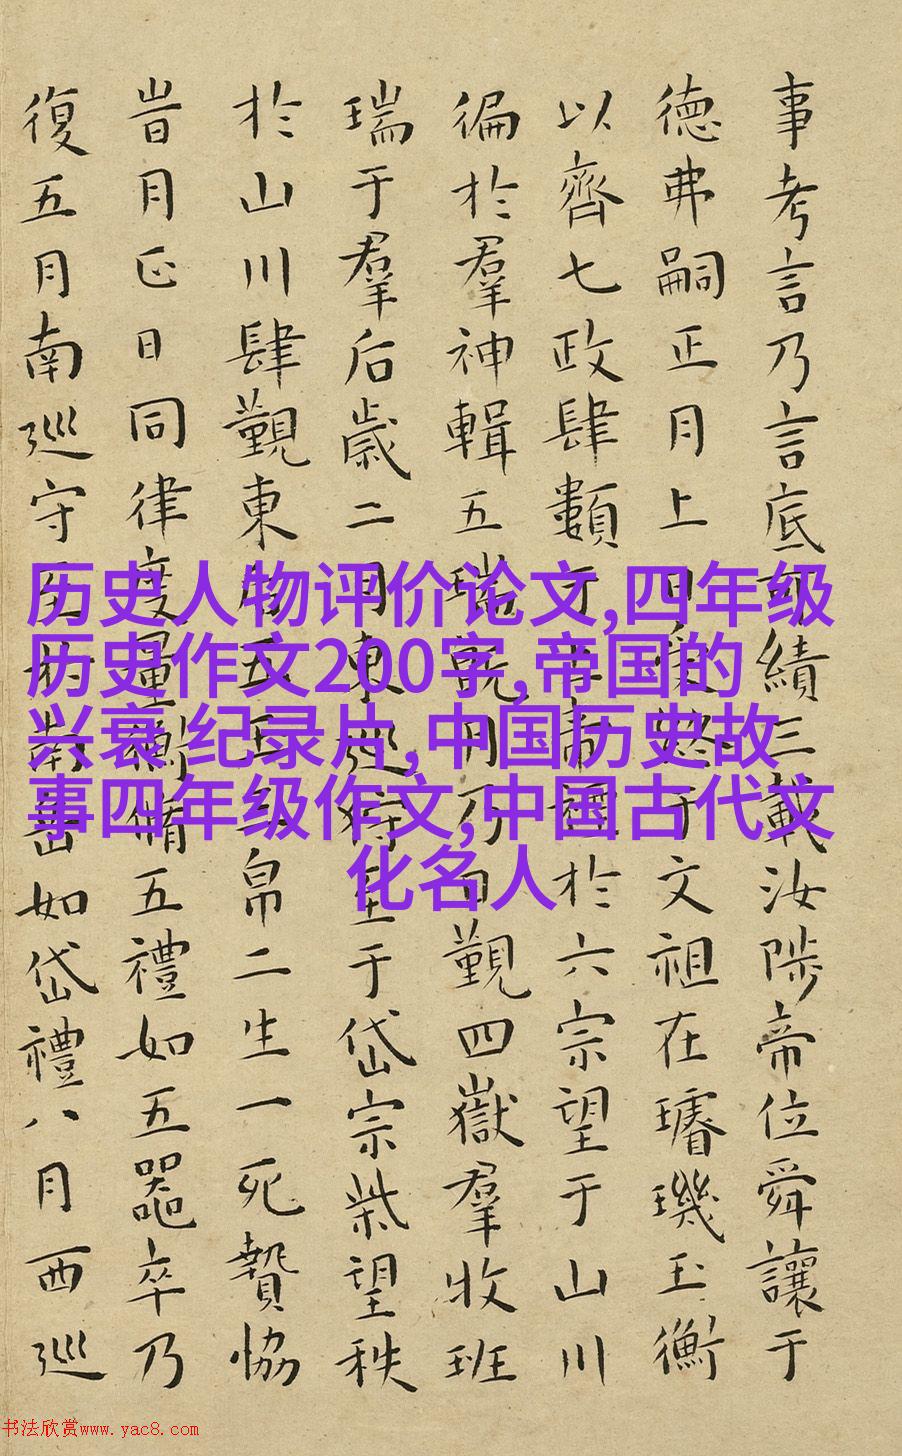 事考言乃言底可績三載汝陟帝位舜讓于
德弗嗣正月上日受終于文祖在璿璣玉衡
以齊七政肆類于上帝禋於六宗望于山川
徧於羣神輯五瑞既月乃日覲四嶽羣牧班
瑞于羣后歲二月東巡狩至于岱宗柴望秩
於山川肆覲東后五玉三帛二生一死贄協
旹月正日同律度量衡脩五禮如五器卒乃
復五月南巡守至於南岳如岱禮八月西巡
历史人物评价论文,四年级
历史作文200字,帝国的
兴衰 纪录片,中国历史故
事四年级作文,中国古代文
化名人
书法欣赏www.yac8.com